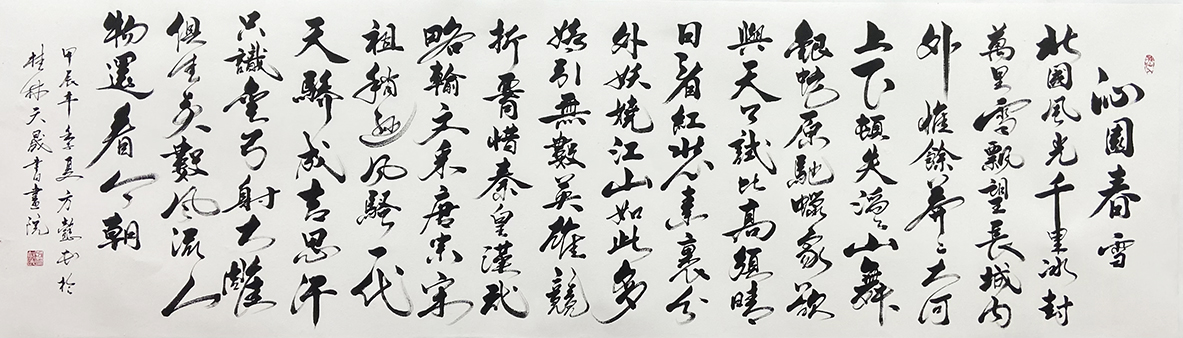 沁園春雪
北國風光千里冰封
萬里雪飄望長城内
外惟餘莽〻大河
上下頓失滔〻山舞
銀蛇原馳蠟象欲
與天公試比高須晴
日看紅裝素裹分
外妖嬈江山如此多
嬌引無數英雄競
折腰惜秦皇漢武
略輸文采唐宗宋
祖稍遜風騷一代
天驕成吉思汗
只識彎弓射大雕
俱往矣數風流人
物還看今朝
甲辰年季夏方懿書於
桂林天晟書畫院